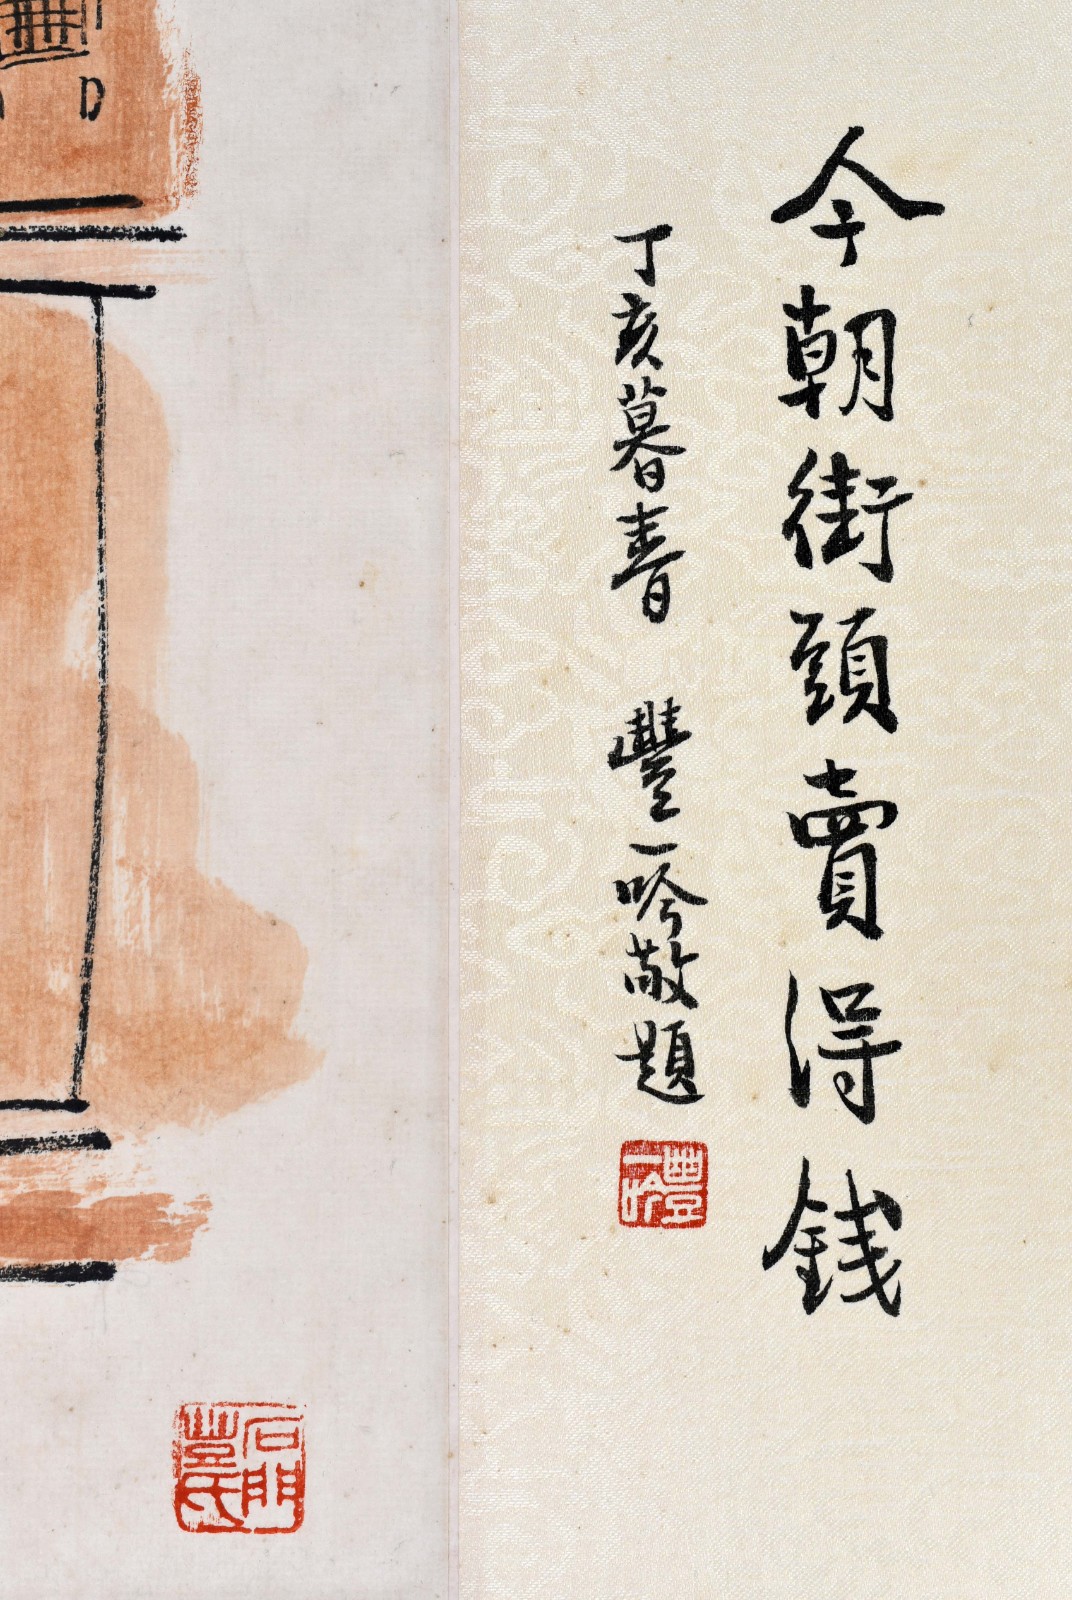 今朝街頭賣得錢
丁亥暮春 豐一吟敬題
豐一吟
D
石門豐氏